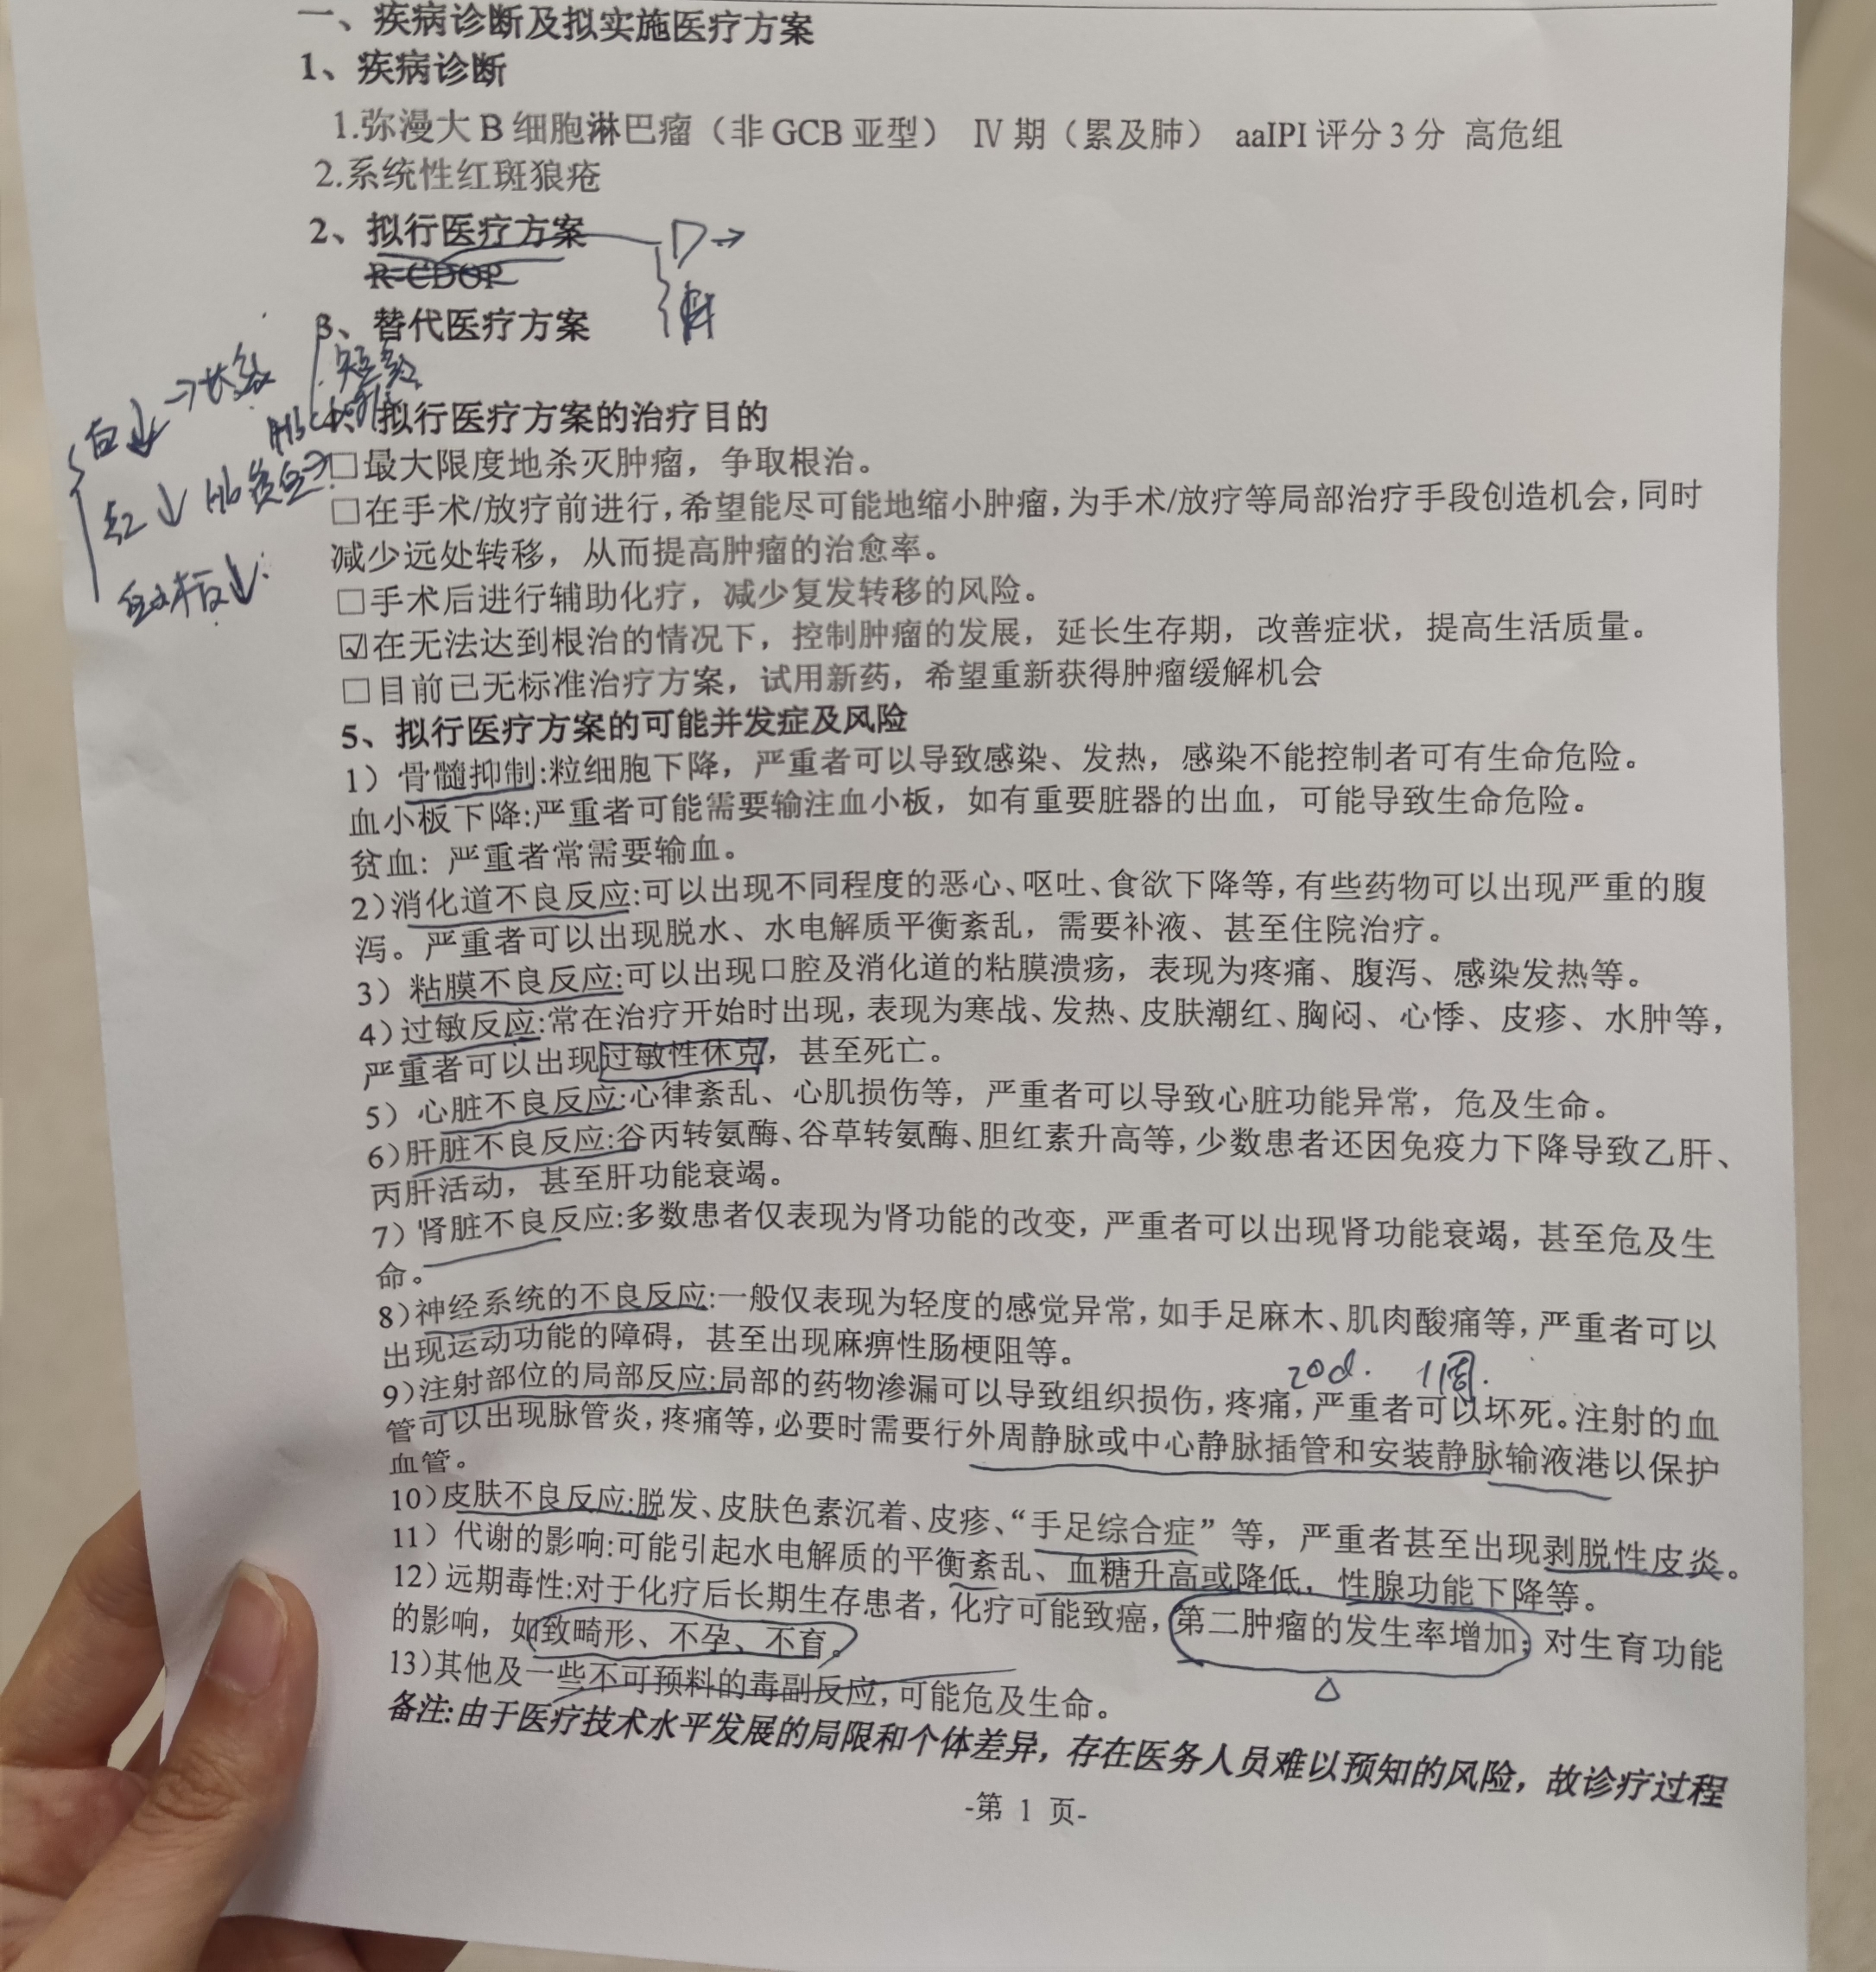 一、疾病诊断及拟实施医疗方案
1、疾病诊断
1.弥漫大B细胞淋巴瘤（非GCB亚型） Ⅳ期（累及肺） aaIPI评分3分 高危组
2.系统性红斑狼疮
2、拟行医疗方案
D→
R-CDOP
3、替代医疗方案
短效
白↓→长效
4、拟行医疗方案的治疗目的
□最大限度地杀灭肿瘤，争取根治。
红↓ Hb
□在手术/放疗前进行,希望能尽可能地缩小肿瘤,为手术/放疗等局部治疗手段创造机会,同时
减少远处转移，从而提高肿瘤的治愈率。
血↓:
□手术后进行辅助化疗，减少复发转移的风险。
☑在无法达到根治的情况下，控制肿瘤的发展，延长生存期，改善症状，提高生活质量。
□目前已无标准治疗方案，试用新药，希望重新获得肿瘤缓解机会
5、拟行医疗方案的可能并发症及风险
1）骨髓抑制:粒细胞下降，严重者可以导致感染、发热，感染不能控制者可有生命危险。
血小板下降:严重者可能需要输注血小板，如有重要脏器的出血，可能导致生命危险。
贫血：严重者常需要输血。
2)消化道不良反应:可以出现不同程度的恶心、呕吐、食欲下降等,有些药物可以出现严重的腹
泻。严重者可以出现脱水、水电解质平衡紊乱，需要补液、甚至住院治疗。
3）粘膜不良反应:可以出现口腔及消化道的粘膜溃疡，表现为疼痛、腹泻、感染发热等。
4)过敏反应:常在治疗开始时出现,表现为寒战、发热、皮肤潮红、胸闷、心悸、皮疹、水肿等，
严重者可以出现过敏性休克，甚至死亡。
5）心脏不良反应:心律紊乱、心肌损伤等，严重者可以导致心脏功能异常，危及生命。
6)肝脏不良反应:谷丙转氨酶、谷草转氨酶、胆红素升高等,少数患者还因免疫力下降导致乙肝、
丙肝活动，甚至肝功能衰竭。
7）肾脏不良反应:多数患者仅表现为肾功能的改变，严重者可以出现肾功能衰竭，甚至危及生
命。
8)神经系统的不良反应:一般仅表现为轻度的感觉异常,如手足麻木、肌肉酸痛等,严重者可以
出现运动功能的障碍，甚至出现麻痹性肠梗阻等。
20d. 1周.
9)注射部位的局部反应:局部的药物渗漏可以导致组织损伤,疼痛,严重者可以坏死。注射的血
管可以出现脉管炎,疼痛等,必要时需要行外周静脉或中心静脉插管和安装静脉输液港以保护
血管。
10)皮肤不良反应:脱发、皮肤色素沉着、皮疹、“手足综合症”等，严重者甚至出现剥脱性皮炎。
11）代谢的影响:可能引起水电解质的平衡紊乱、血糖升高或降低，性腺功能下降等。
12)远期毒性:对于化疗后长期生存患者,化疗可能致癌,第二肿瘤的发生率增加;对生育功能
的影响，如致畸形、不孕、不育。
13)其他及一些不可预料的毒副反应,可能危及生命。
备注:由于医疗技术水平发展的局限和个体差异，存在医务人员难以预知的风险，故诊疗过程
-第 1 页-